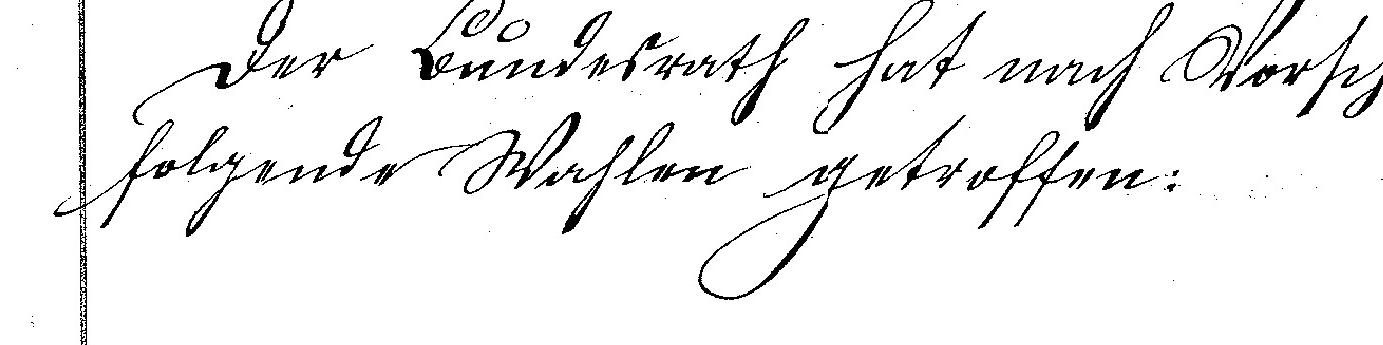 Der Bundesrath hat nach Vorsch
folgende Wahlen getroffen: